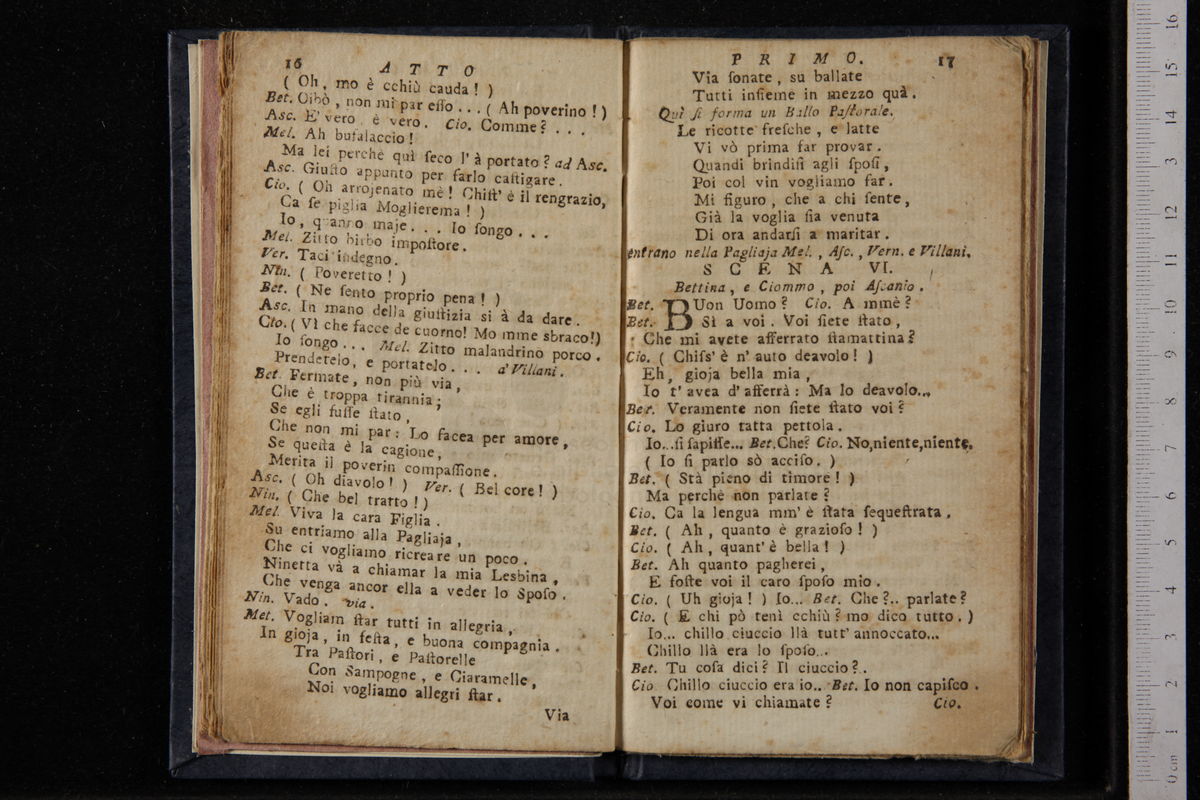 16 ATTO
( Oh, mo è cchiù cauda! )
Bet. Oibò, non mi par eſſo... ( Ah poverino! )
Asc. E' vero è vero. Cio. Comme? ...
Mel. Ah bufalaccio!
Ma lei perchè quì ſeco l' à portato? ad Asc.
Asc. Giuſto appunto per farlo caſtigare.
Cio. ( Oh arrojenato mè! Chiſt' è il rengrazio,
Ca ſe piglia Moglierema! )
Io, quanno maje... Io ſongo...
Mel. Zitto birbo impoſtore.
Ver. Taci indegno.
Nin. ( Poveretto! )
Bet. ( Ne ſento proprio pena! )
Asc. In mano della giuſtizia si à da dare.
Cio. ( Vì che facce de cuorno! Mo mme sbraco!)
Io ſongo... Mel. Zitto malandrino porco.
Prendetelo, e portatelo... a' Villani.
Bet. Fermate, non più via,
Che è troppa tirannia;
Se egli fuſſe ſtato,
Che non mi par: Lo facea per amore,
Se queſta è la cagione,
Merita il poverin compaſſione.
Asc. ( Oh diavolo! ) Ver. ( Bel core! )
Nin. ( Che bel tratto! )
Mel. Viva la cara Figlia.
Su entriamo alla Pagliaja,
Che ci vogliamo ricreare un poco.
Ninetta và a chiamar la mia Lesbina,
Che venga ancor ella a veder lo Spoſo.
Nin. Vado. via.
Mel. Vogliam ſtar tutti in allegria,
In gioja, in feſta, e buona compagnia.
Tra Paſtori, e Paſtorelle
Con Sampogne, e Ciaramelle,
Noi vogliamo allegri ſtar.
Via
PRIMO. 17
Via ſonate, su ballate
Tutti inſieme in mezzo quà.
Quì ſi forma un Ballo Paſtorale.
Le ricotte freſche, e latte
Vi vò prima far provar.
Quandi brindiſi agli ſpoſi,
Poi col vin vogliamo far.
Mi figuro, che a chi ſente,
Già la voglia ſia venuta
Di ora andarſi a maritar.
entrano nella Pagliaja Mel., Aſc., Vern. e Villani.
SCENA VI.
Bettina, e Ciommo, poi Aſcanio.
Bet. BUon Uomo? Cio. A mmè?
Bet. Sì a voi. Voi ſiete ſtato,
Che mi avete afferrato ſtamattina?
Cio. ( Chiſs' è n' auto deavolo! )
Eh, gioja bella mia,
Io t' avea d' afferrà: Ma lo deavolo...
Bet. Veramente non ſiete ſtato voi?
Cio. Lo giuro tatta pettola.
Io...ſi ſapiſſe... Bet. Che? Cio. No, niente, niente.
( Io ſi parlo sò acciſo. )
Bet. ( Stà pieno di timore! )
Ma perchè non parlate?
Cio. Ca la lengua mm' è ſtata ſequeſtrata,
Bet. ( Ah, quanto è grazioſo! )
Cio. ( Ah, quant' è bella! )
Bet. Ah quanto pagherei,
E foſte voi il caro ſpoſo mio.
Cio. ( Uh gioja! ) Io... Bet. Che?.. parlate?
Cio. ( E chi pò tenì cchiù? mo dico tutto. )
Io... chillo ciuccio llà tutt' annoccato...
Chillo llà era lo ſpoſo...
Bet. Tu coſa dici? Il ciuccio?.
Cio Chillo ciuccio era io.. Bet. Io non capiſco.
Voi come vi chiamate? Cio.